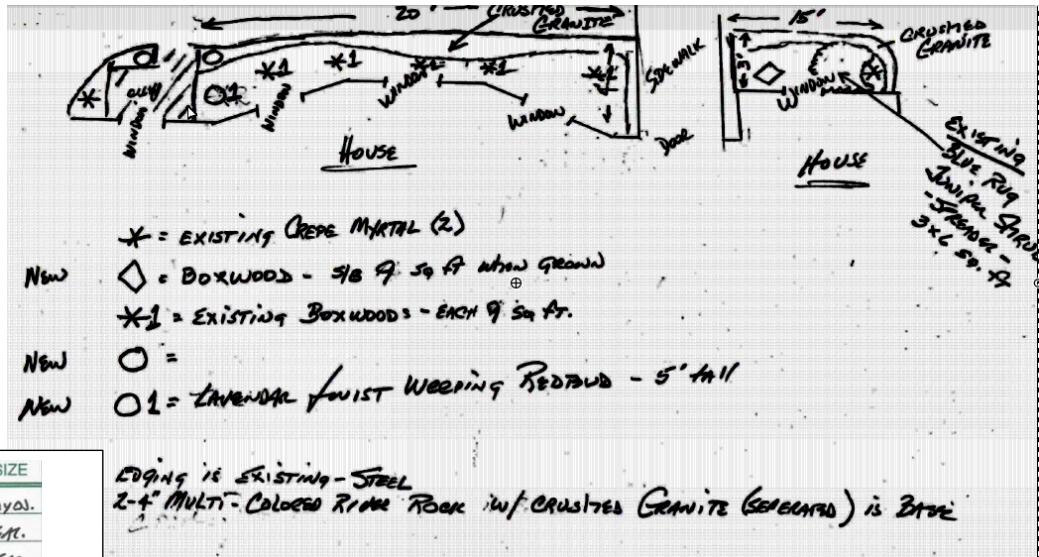 20' CRUSHED
GRANITE
15'
CRUSHED
GRANITE
SIDEWALK
WINDOW
WINDOW
WINDOW
WINDOW
WINDOW
DOOR
HOUSE
HOUSE
EXISTING
BLUE RUG
JUNIPER SHRUB
- SPREADER -
3x6 SQ. ft
* = EXISTING CREPE MYRTAL (2)
NEW ◇ = BOXWOOD - S/B 9 SQ ft WHEN GROWN
*1 = EXISTING BOXWOODS - EACH 9 SQ FT.
NEW O =
NEW O1 = LAVENDAR TWIST WEEPING REDBUD - 5' tAll
EDGING IS EXISTING - STEEL
2-4" MULTI-COLORED RIVER ROCK W/ CRUSHED GRANITE (SEPERATED) IS BASE
SIZE